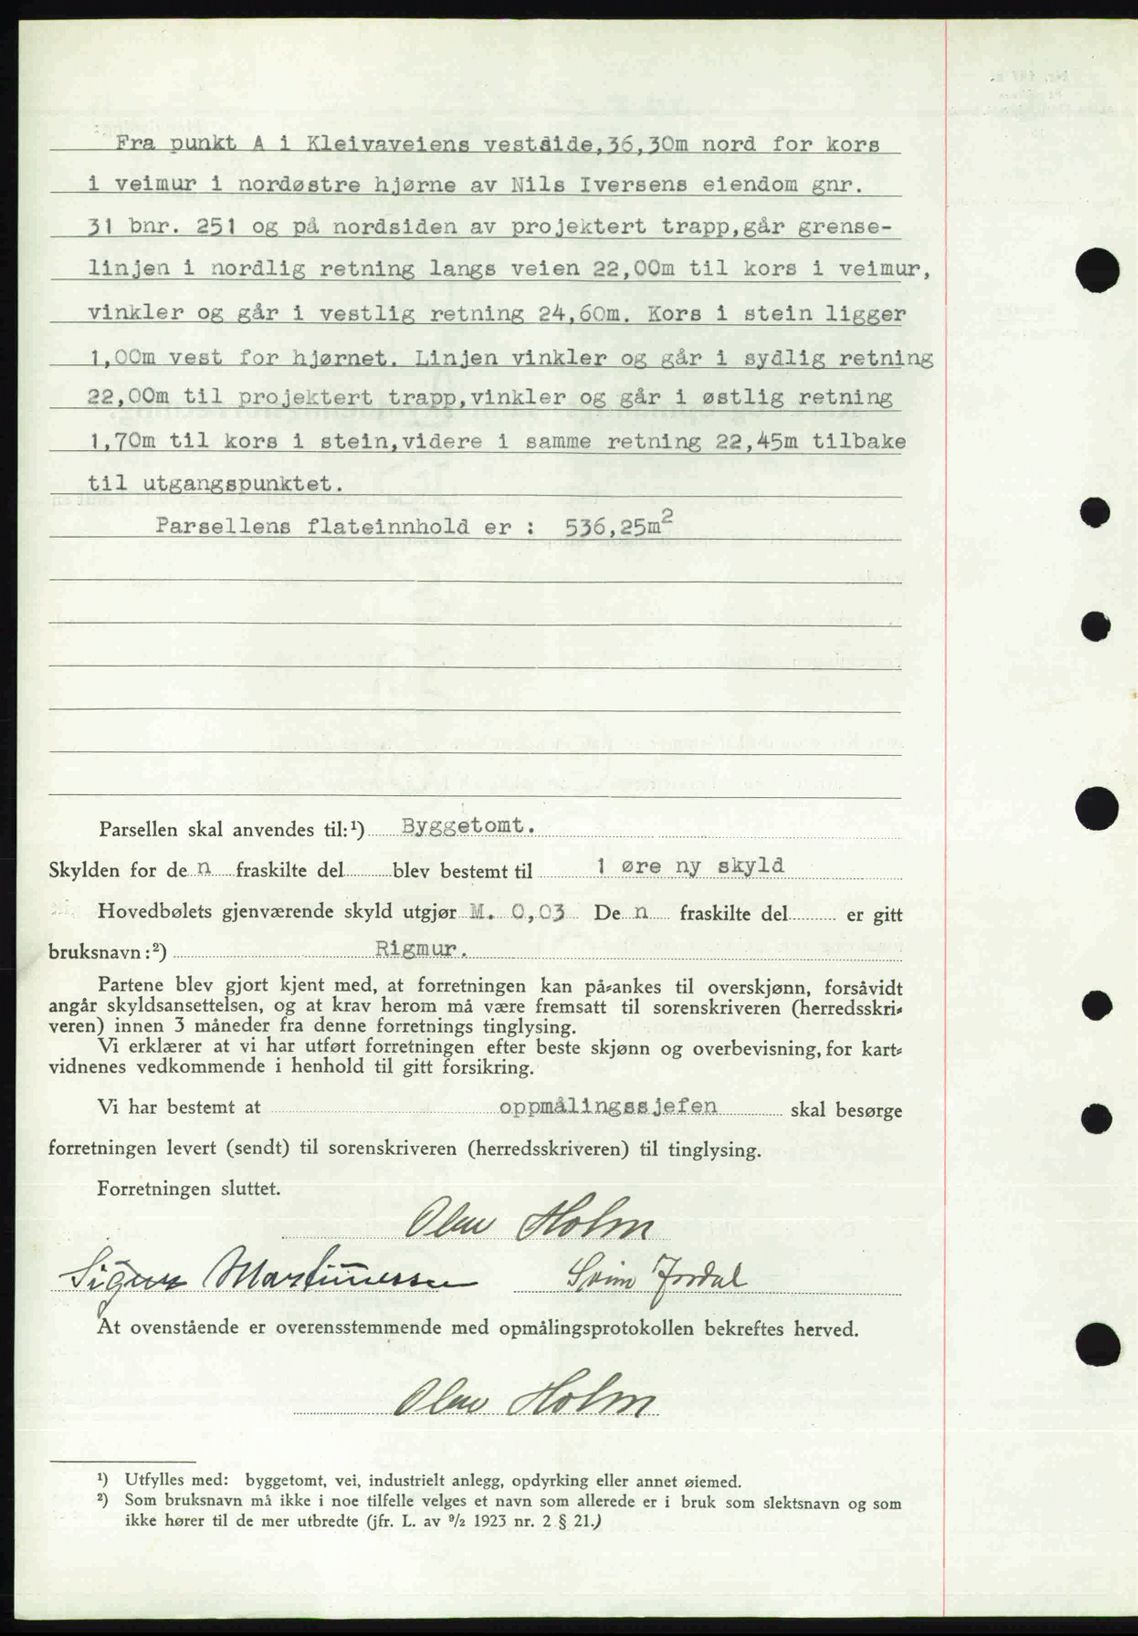 Fra punkt A i Kleivaveiens vestside,36,30m nord for kors
i veimur i nordøstre hjørne av Nils Iversens eiendom gnr.
31 bnr. 251 og på nordsiden av projektert trapp,går grense-
linjen i nordlig retning langs veien 22,00m til kors i veimur,
vinkler og går i vestlig retning 24,60m. Kors i stein ligger
1,00m vest for hjørnet. Linjen vinkler og går i sydlig retning
22,00m til projektert trapp,vinkler og går i østlig retning
1,70m til kors i stein,videre i samme retning 22,45m tilbake
til utgangspunktet.
Parsellens flateinnhold er : 536,25m²
Parsellen skal anvendes til:¹) Byggetomt.
Skylden for de n fraskilte del blev bestemt til 1 øre ny skyld
Hovedbølets gjenværende skyld utgjør M. 0,03 De n fraskilte del er gitt
bruksnavn:²) Rigmur.
Partene blev gjort kjent med, at forretningen kan på-ankes til overskjønn, forsåvidt
angår skyldsansettelsen, og at krav herom må være fremsatt til sorenskriveren (herredsskri-
veren) innen 3 måneder fra denne forretnings tinglysing.
Vi erklærer at vi har utført forretningen efter beste skjønn og overbevisning, for kart-
vidnenes vedkommende i henhold til gitt forsikring.
Vi har bestemt at oppmålingssjefen skal besørge
forretningen levert (sendt) til sorenskriveren (herredsskriveren) til tinglysing.
Forretningen sluttet.
Olav Holm
Sigurd Martinussen Svim Jordal
At ovenstående er overensstemmende med opmålingsprotokollen bekreftes herved.
Olav Holm
¹) Utfylles med: byggetomt, vei, industrielt anlegg, opdyrking eller annet øiemed.
²) Som bruksnavn må ikke i noe tilfelle velges et navn som allerede er i bruk som slektsnavn og som
ikke hører til de mer utbredte (jfr. L. av ⁹/₂ 1923 nr. 2 § 21.)